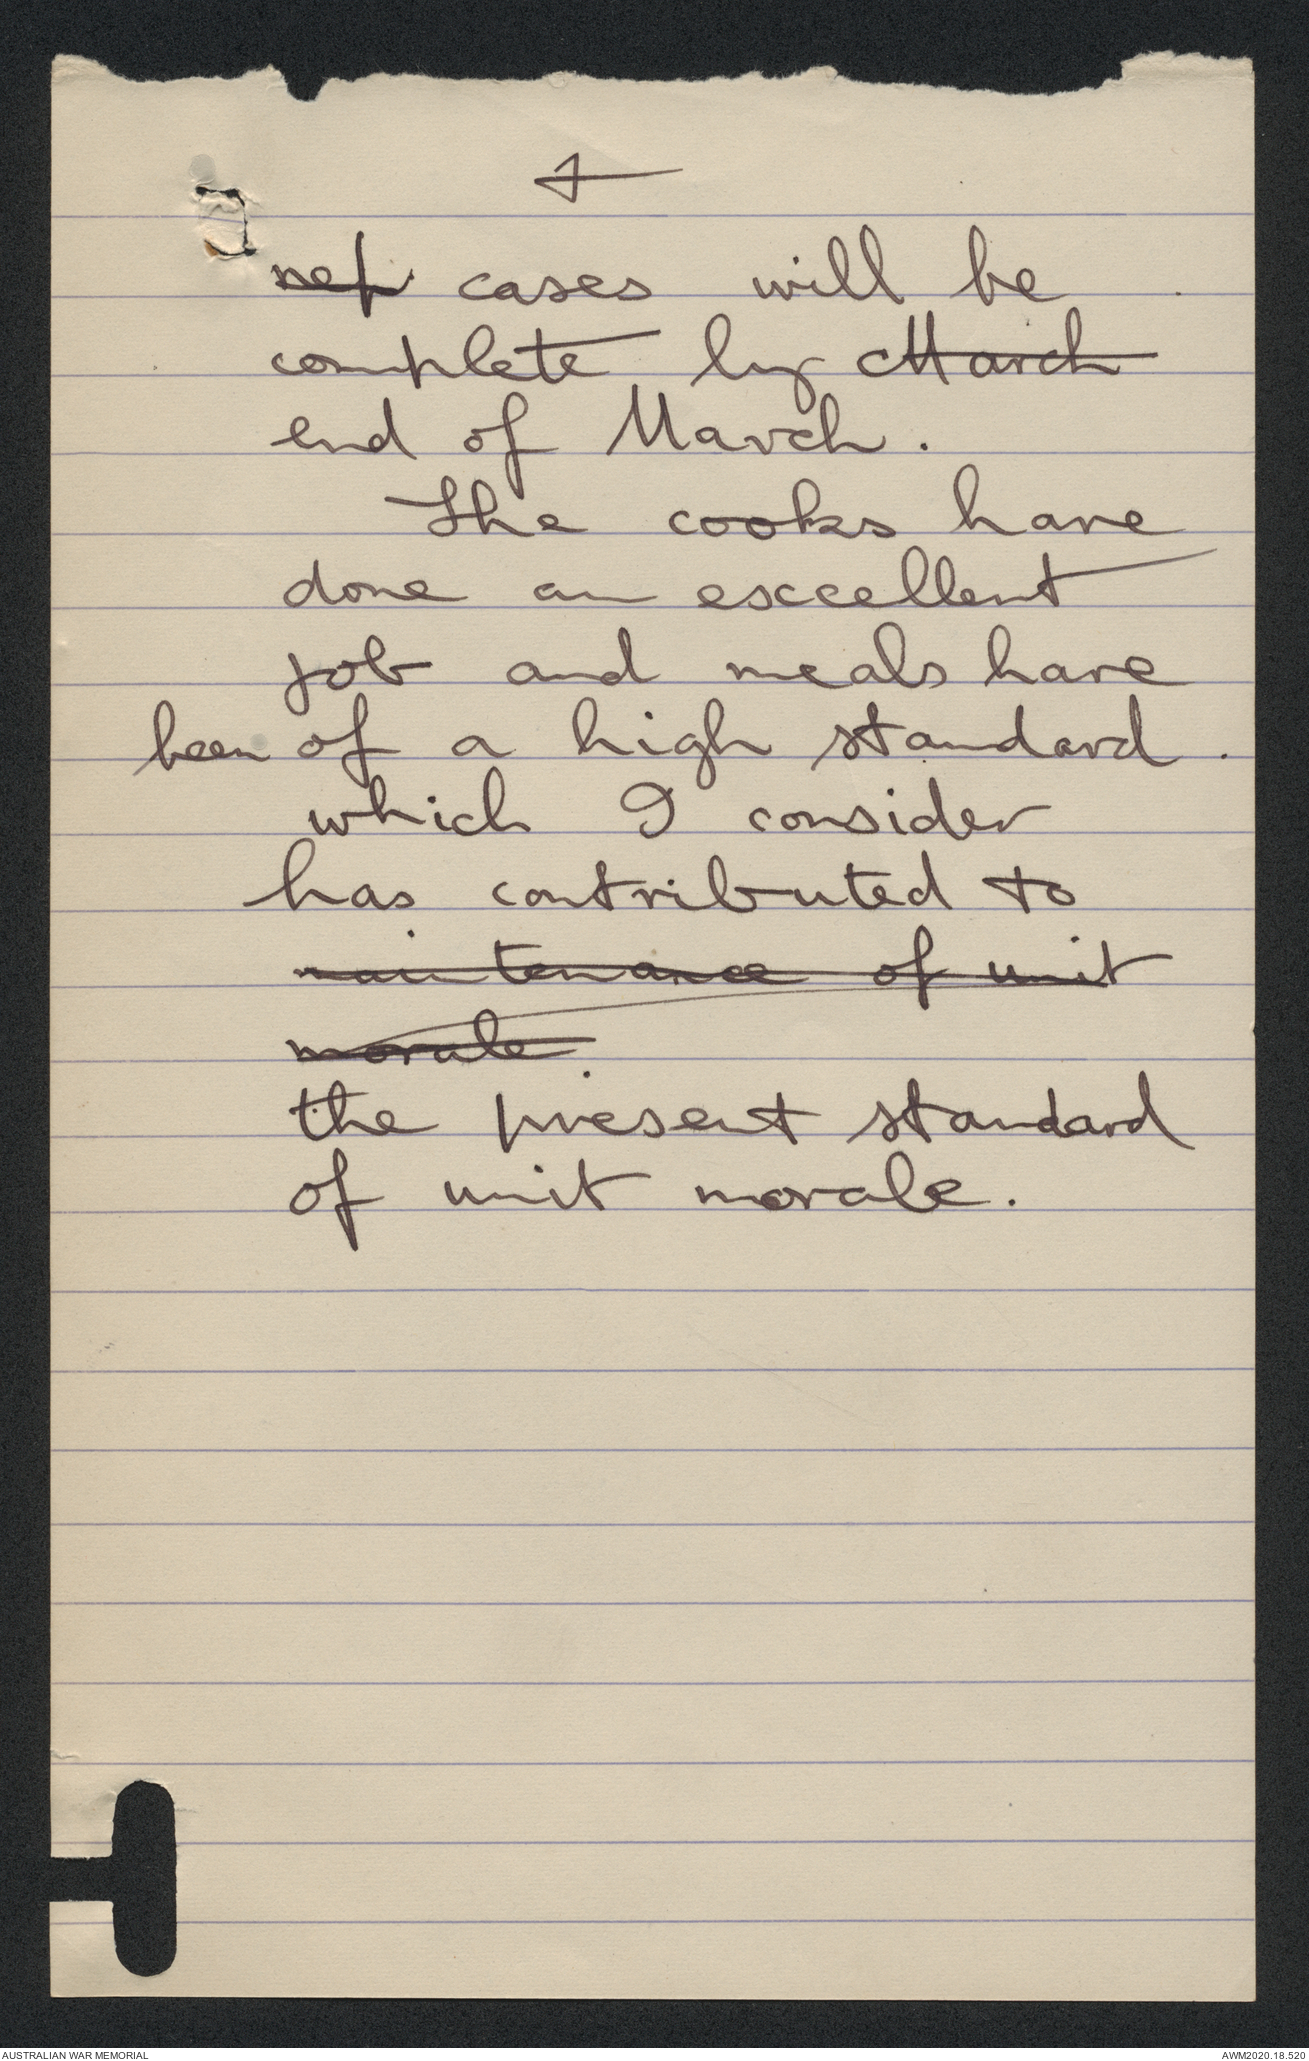 4
cases will be
complete by March
end of March.
The cooks have
done an excellent
job and meals have
been of a high standard.
which I consider
has contributed to
maintenance of unit
morale
the present standard
of unit morale.
AUSTRALIAN WAR MEMORIAL
AWM2020.18.520